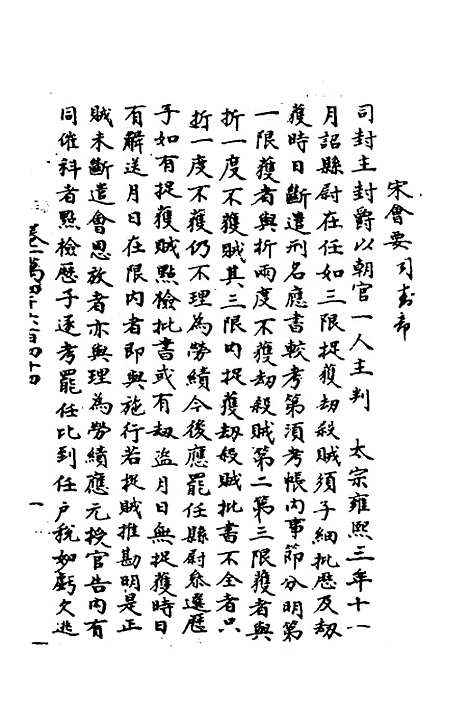 宋會要司封部
司封主封爵以朝官一人主判　太宗雍熙三年十一
月詔縣尉在任如三限捉獲劫殺賊須子細批歷及劫
獲時日斷遣刑名應書較考第須考帳內事節分明第
一限獲者與折兩度不獲劫殺賊第二第三限獲者與
折一度不獲賊其三限內捉獲劫殺賊批書不全者只
折一度不獲仍不理為勞績今後應罷任縣尉參選歷
子如有捉獲賊點檢批書或有劫盜月日無捉獲時日
有解送月日在限內者即與施行若捉賊推勘明是正
賊未斷遣會恩放者亦與理為勞績應元授官告內有
同催科者點檢歷子逐考罷任比到任戶稅如虧欠逃
卷一萬四千六百四十四
一